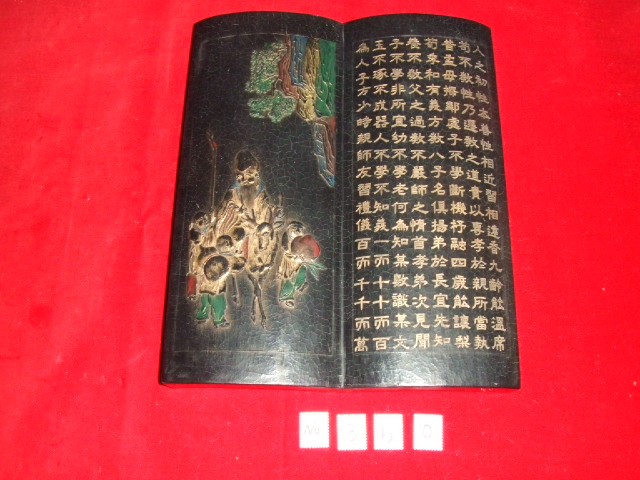 人之初性本善性相近習相遠香九齡能溫席
苟不教性乃遷教之道貴以專孝於親所當執
昔孟母擇鄰處子不學斷機杼融四歲能讓梨
荀季和有義方教八子名俱揚弟於長宜先知
養不教父之過教不嚴師之惰首孝弟次見聞
子不學非所宜幼不學老何為知某數識某文
玉不琢不成器人不學不知義一而十十而百
為人子方少時親師友習禮儀百而千千而萬
No